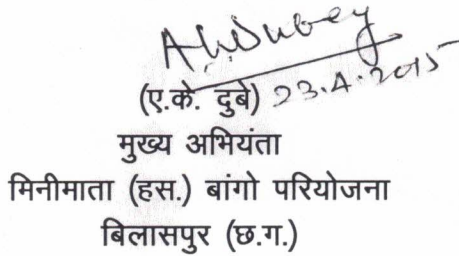 AKDubey
23.4.2015
(ए.के. दुबे)
मुख्य अभियंता
मिनीमाता (हस.) बांगो परियोजना
बिलासपुर (छ.ग.)